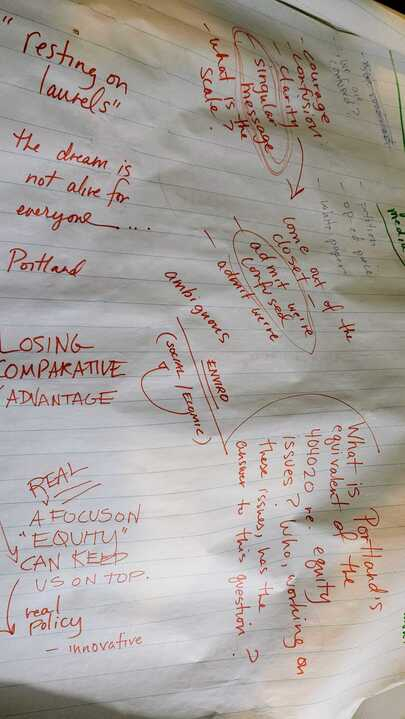 "resting on
laurels"
the dream is
not alive for
everyone....
Portland
LOSING
COMPARATIVE
ADVANTAGE
REAL
A FOCUS ON
"EQUITY"
CAN KEEP
US ON TOP.
real
policy
- innovative
- courage
- confusion
- clarity
(singular
message
- what is the
scale?
come out of the
closet -
- admit we're
confused
- admit we're
ambiguous
ENVIRO
(SOCIAL /
What is Portland's
equivalent of the
404020 re. equity
issues? Who, working on
these issues, has the
answer to this question?
- op ed piece
- white paper